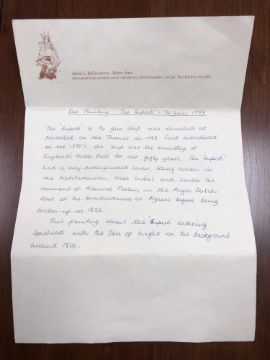 Oil Painting - The 'Superb' - 74 guns 1798
The 'Superb' a 74 gun ship was launched at
Northfleet on the Thames in 1798. First introduced
in the 1750's the ship was the mainstay of
England's battle fleet for over fifty years. The 'Superb'
had a very distinguished career, seeing action in
the Mediterranean, West Indies and under the
command of Admiral Pellew in the Anglo Dutch
fleet at the bombardment of Algiers before being
broken up in 1826.
This painting shows the 'Superb' entering
Spithead with the Isle of Wight in the background
around 1806.